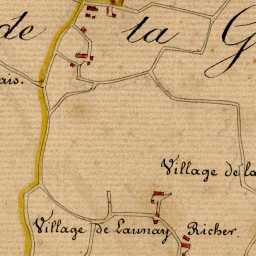 de la G
ais.
Village de la
Village de Launay Richer.